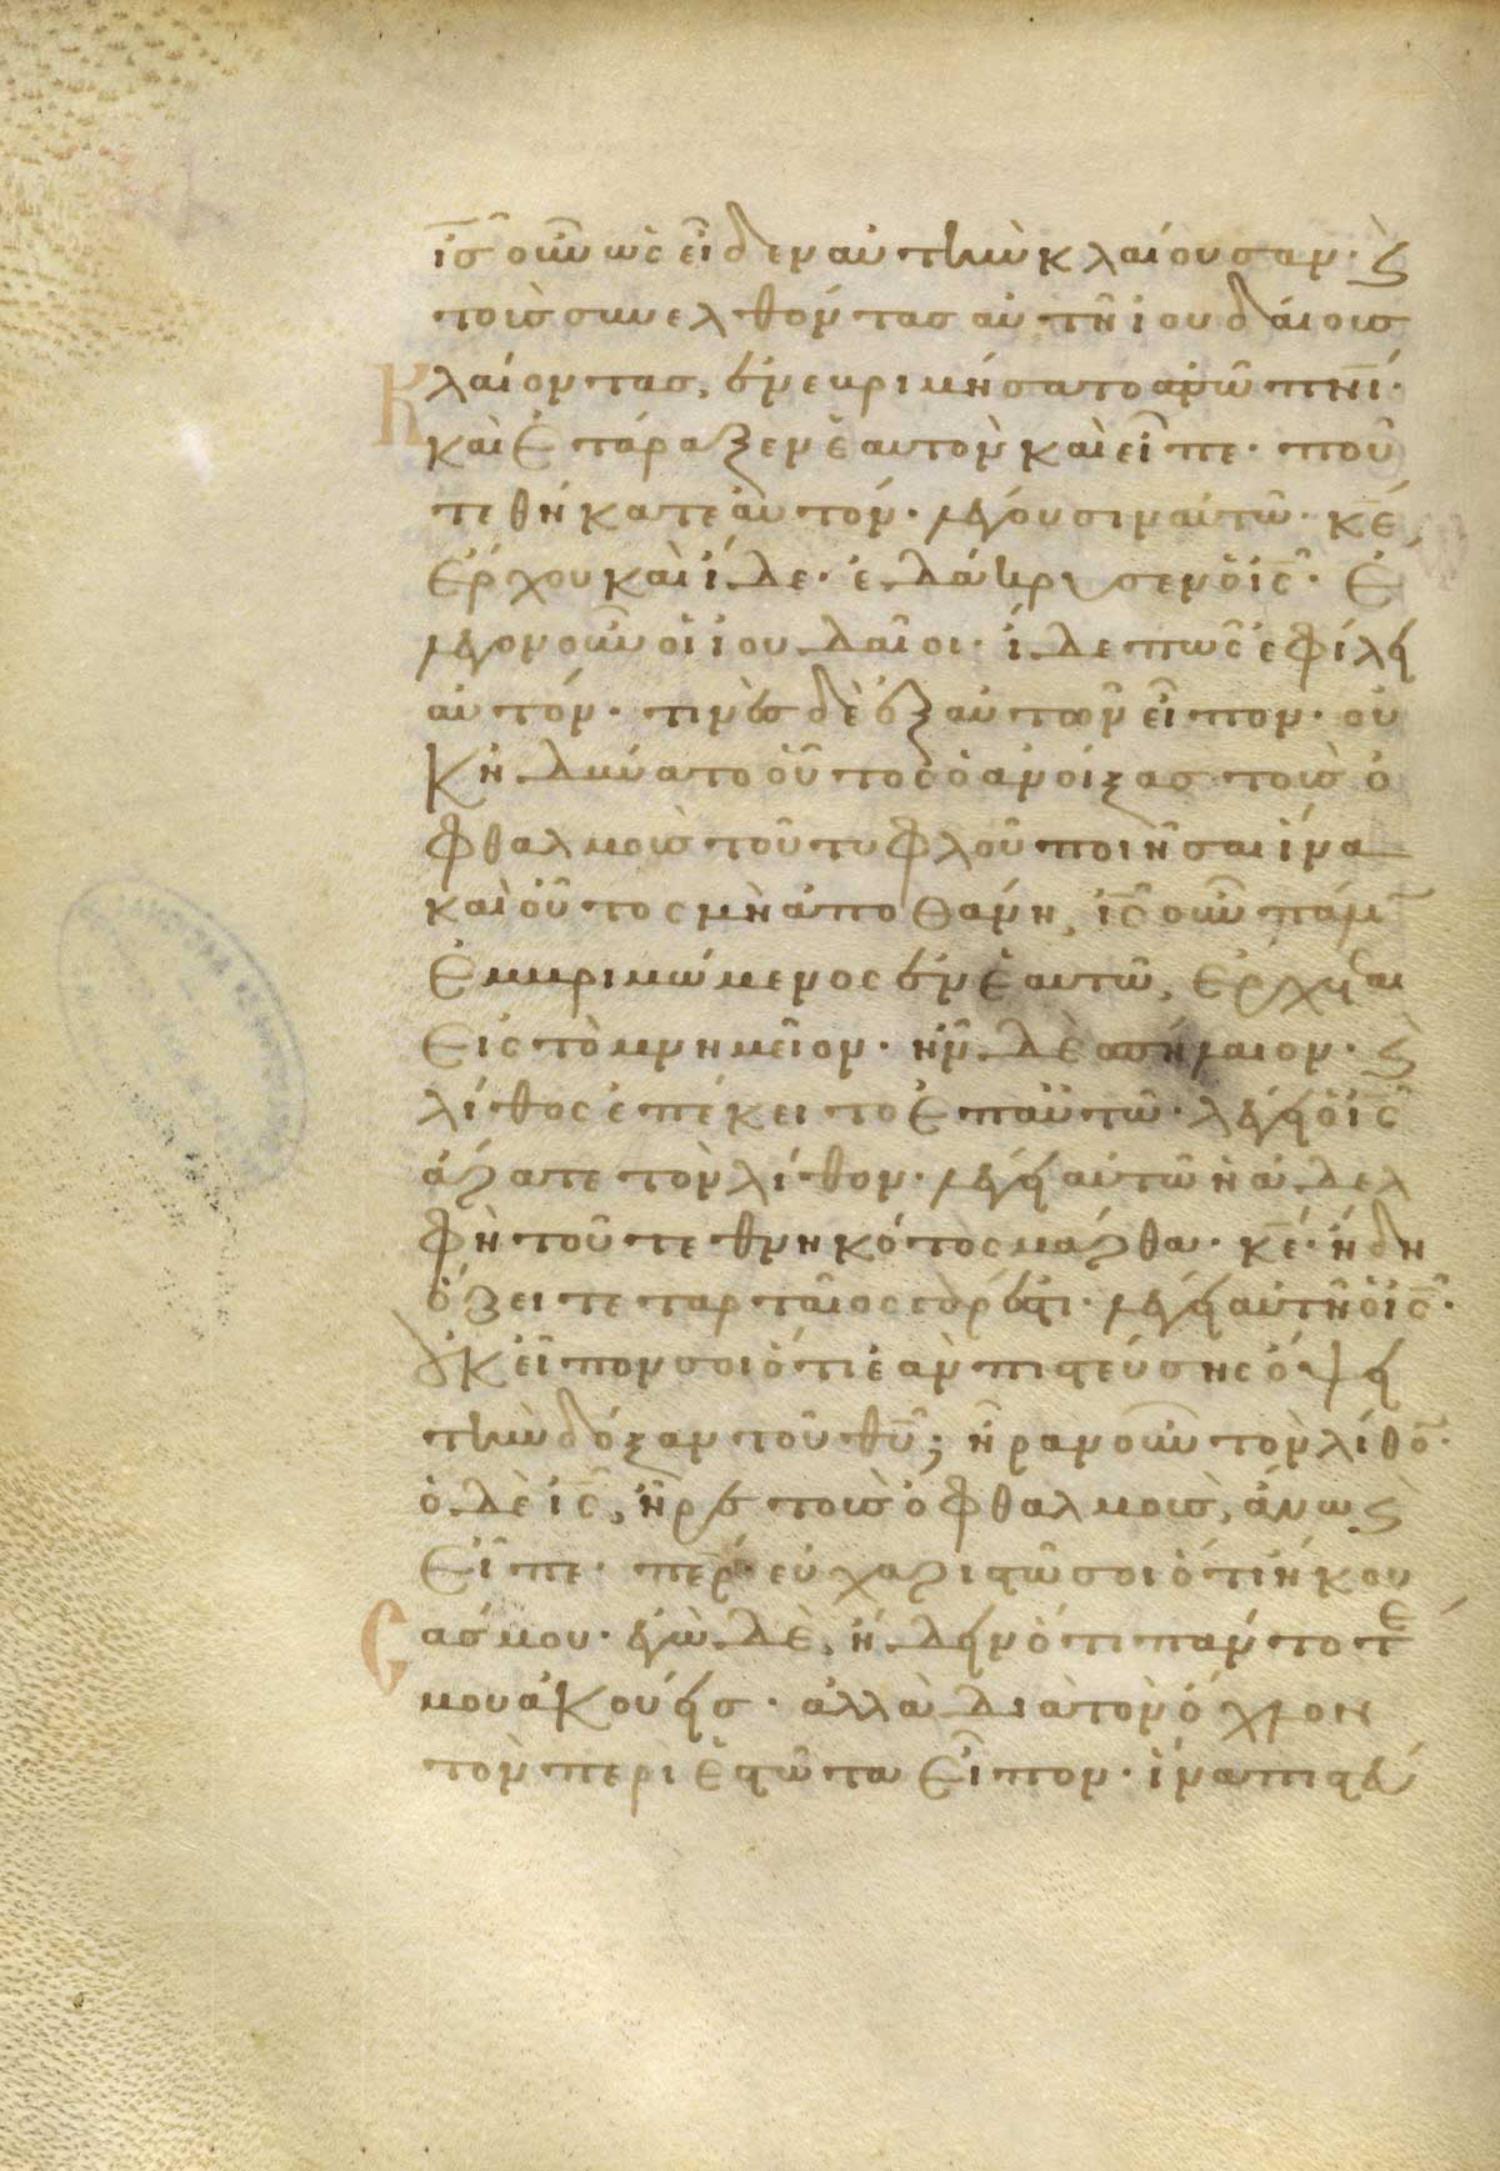 ι̅σ̅ οὖν ὡς εἶδεν αὐτὴν κλαίουσαν· ϗ
τοὺς συνελθόντας αὐτῆ ἰουδάιους
κλαίοντας, ἐνεβριμήσατο τῶ π̅ν̅ι̅·
καὶ ἐτάραξεν ἑαυτὸν καὶ εἶπε· ποῦ
τεθήκατε αὐτόν· λέγουσιν αὐτῶ· κ̅ε̅,
ἔρχου καὶ ἴδε· ἐδάκρυσεν ὁ ι̅ς̅· ἔ
λεγον οὖν οἱ ἰουδαῖοι· ἴδε πῶς ἐφίλει
αὐτόν· τινὲς δὲ ἐξ αὐτῶν εἶπον· οὐ
κ ἠδύνατο οὗτος ὁ ἀνοίξας τοὺς ὀ
φθαλμοὺς τοῦ τυφλοῦ ποιῆσαι ἵνα
καὶ οὗτος μὴ ἀποθάνη, ι̅ς̅ οὖν πάλιν
ἐμβριμώμενος ἐν ἑαυτῶ, ἔρχεται
εἰς τὸ μνημεῖον· ἦν δὲ σπήλαιον· ϗ
λίθος ἐπέκειτο ἐπ αὐτῶ· λέγει ὁ ι̅ς̅
ἄρατε τὸν λίθον· λέγει αὐτῶ ἡ ἀδελ
φὴ τοῦ τεθνηκότος μάρθα· κ̅ε̅· ἤδη
ὄζει τεταρταῖος γάρ ἐστι· λέγει αὐτῆ ὁ ι̅ς̅·
οὐκ εἶπον σοι ὅτι ἐὰν πιστεύσης ὄψει
τὴν δόξαν τοῦ θ̅υ̅; ἦραν οὖν τὸν λίθον·
ὁ δὲ ι̅ς̅, ἦρε τοὺς ὀφθαλμοὺς, ἄνω ϗ
εἶπε· π̅ε̅ρ̅· εὐχαριστῶ σοι ὅτι ἤκου
σάς μου· ἐγὼ δὲ, ἤδειν ὅτι πάντοτε
μου ἀκούεις· ἀλλὰ διὰ τὸν ὄχλον
τὸν περιεστῶτα εἶπον· ἵνα πιστεύ